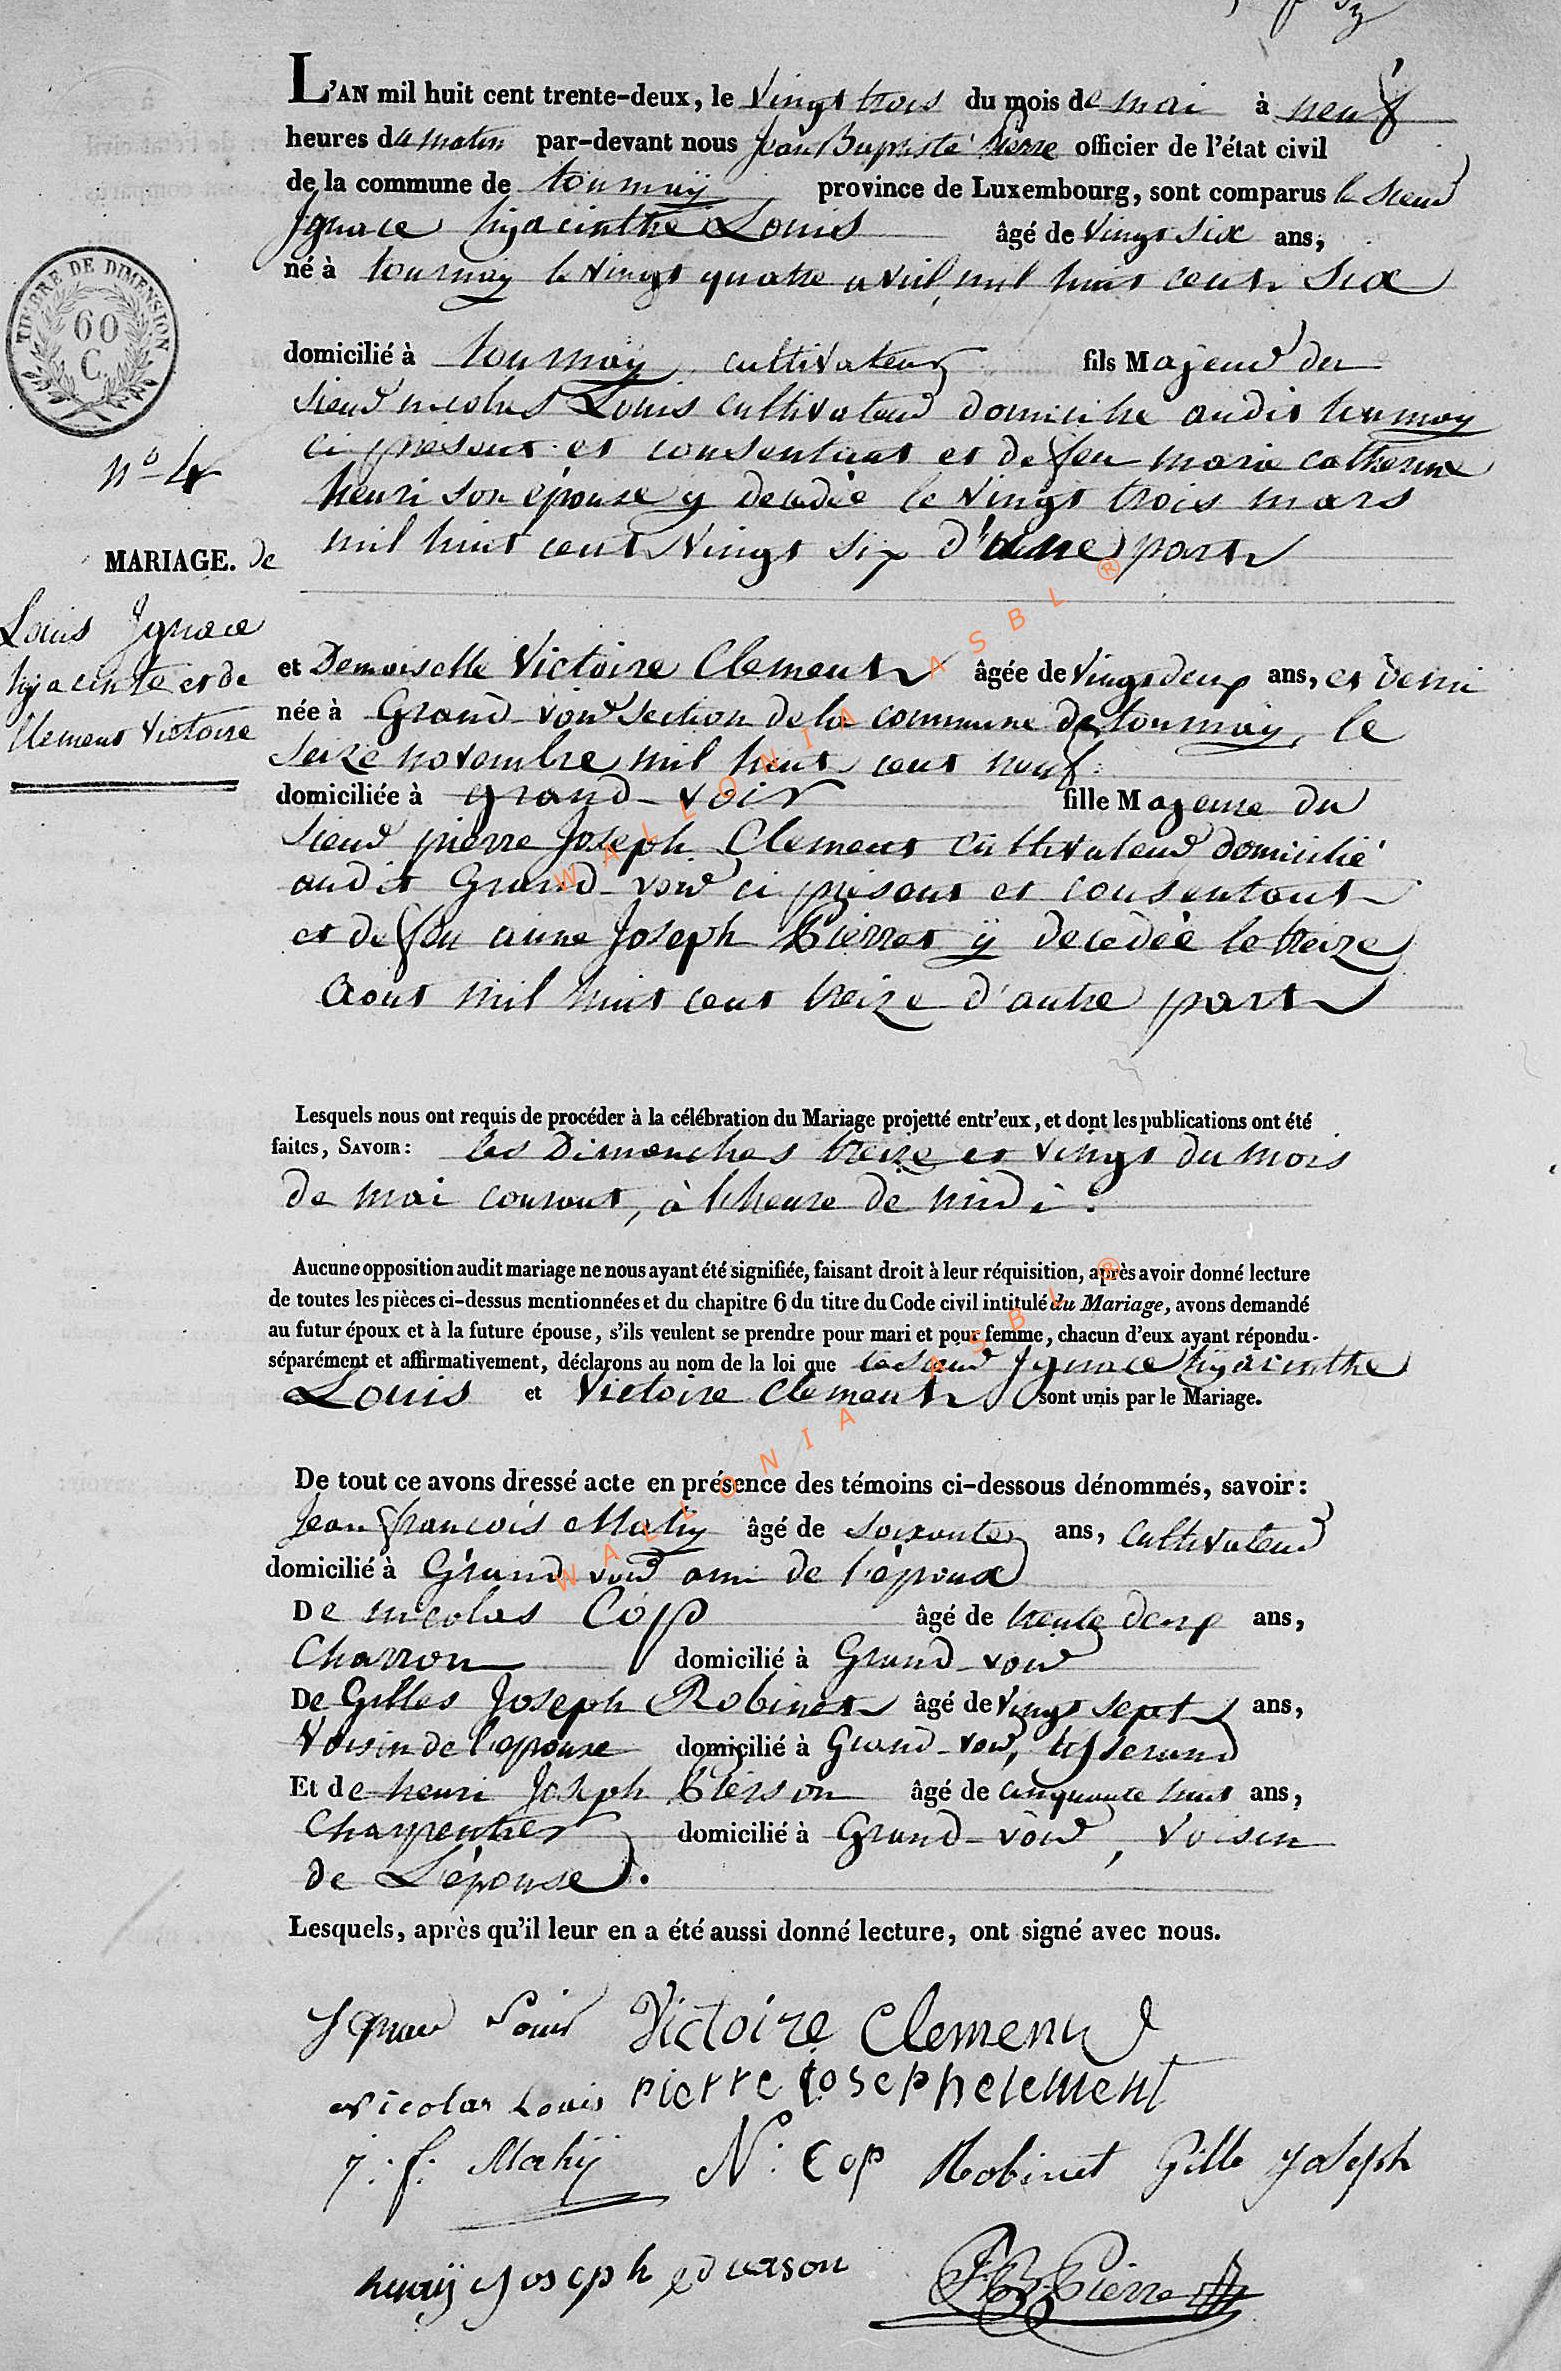 L'AN mil huit cent trente-deux, le vingt trois du mois de mai à neuf
heures du matin par-devant nous Jean Baptiste Pierre officier de l'état civil
de la commune de tournaÿ province de Luxembourg, sont comparus le sieur
Ignace hyacinthe Louis âgé de vingt six ans,
né à tournay le vingt quatre avril mil huit cent six
TIMBRE DE DIMENSION
60
C.
domicilié à tournay cultivateur fils Majeur du
sieur nicolas Louis cultivateur domicilié audit tournay
ci présent et consentant et de feu marie catherine
n° 4
henri son épouse y decedée le vingt trois mars
mil huit cent vingt six d'une part
MARIAGE. de
Louis Ignace
hyacinte et de
Clement Victoire
et Demoiselle Victoire Clement âgée de vingt deux ans, et demi
née à Grand-voir section de la commune de tournay, le
seize novembre mil huit cent neuf
domiciliée à grand-voir fille Majeure du
sieur pierre Joseph Clement cultivateur domicilié
audit Grand-voir ci présent et consentant
et de feu anne Joseph Pierret ÿ decedée le treize
aout mil huit cent treize d'autre part
Lesquels nous ont requis de procéder à la célébration du Mariage projetté entr'eux, et dont les publications ont été
faites, SAVOIR: les Dimanches treize et vingt du mois
de mai courant, à l'heure de midi.
Aucune opposition audit mariage ne nous ayant été signifiée, faisant droit à leur réquisition, après avoir donné lecture
de toutes les pièces ci-dessus mentionnées et du chapitre 6 du titre du Code civil intitulé du Mariage, avons demandé
au futur époux et à la future épouse, s'ils veulent se prendre pour mari et pour femme, chacun d'eux ayant répondu
séparément et affirmativement, déclarons au nom de la loi que le sieur Ignace hyacinthe
Louis et Victoire Clement sont unis par le Mariage.
De tout ce avons dressé acte en présence des témoins ci-dessous dénommés, savoir:
Jean françois Mahy âgé de soixante ans, cultivateur
domicilié à Grand voir ami de l'époux
De nicolas Cop âgé de trente deux ans,
Charron domicilié à Grand-voir
De Gilles Joseph Robinet âgé de vingt sept ans,
Voisin de l'epouse domicilié à Grand-voir, tisserand
Et de henri Joseph Pierson âgé de cinquante huit ans,
Charpentier domicilié à Grand-voir, voisin
de L'épouse.
Lesquels, après qu'il leur en a été aussi donné lecture, ont signé avec nous.
Ignace Louis Victoire Clement
Nicolas Louis pierre Joseph clement
j. f. Mahÿ N. Cop Robinet Gille Joseph
Joseph
J B Pierre
WALLONIA ASBL ®
WALLONIA ASBL ®